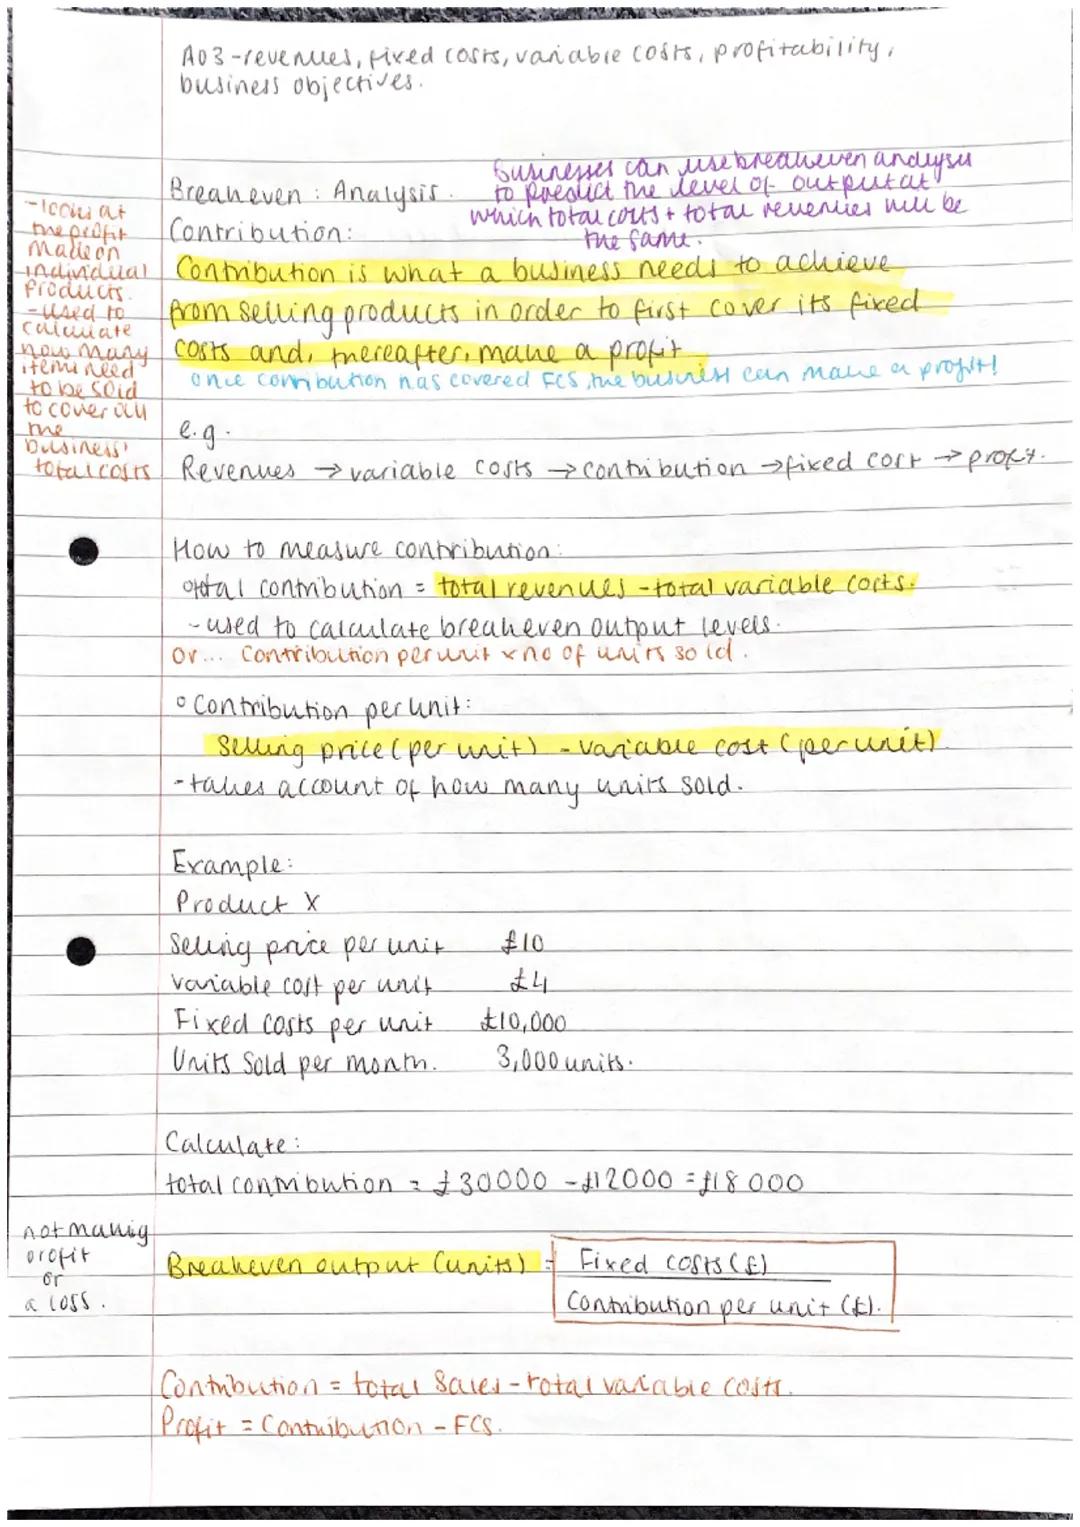 A03-revenues, fixed costs, variable costs, profitability,
business objectives.
Businesses can use breakeven analysis
to predict the level of output at
which total costs + total revenues will be
the same.
Breakeven : Analysis.
Contribution:
-looks at
the profit
made on
individual
products.
-used to
calculate
how many
items need
to be sold
to cover all
the
business'
total costs
Contribution is what a business needs to achieve
from selling products in order to first cover its fixed
costs and, thereafter, make a profit.
once contribution has covered FCS, the business can make a profit!
e.g.
Revenues → variable costs → contribution → fixed cost → profit.
How to measure contribution:
total contribution = total revenues - total variable costs.
- used to calculate breakeven output levels.
Or... Contribution per unit x no of units sold.
° Contribution per unit:
Selling price (per unit) - variable cost (per unit)
- takes account of how many units sold.
Example:
Product X
Selling price per unit £10
variable cost per unit £4
Fixed costs per unit £10,000
Units Sold per month. 3,000 units.
Calculate:
total contribution = £30000 - £12000 = £18 000
not making
profit
or
a loss.
Breakeven output (units) = Fixed costs (£)
Contribution per unit (£).
Contribution = total sales - total variable costs.
Profit = Contribution - FCS.